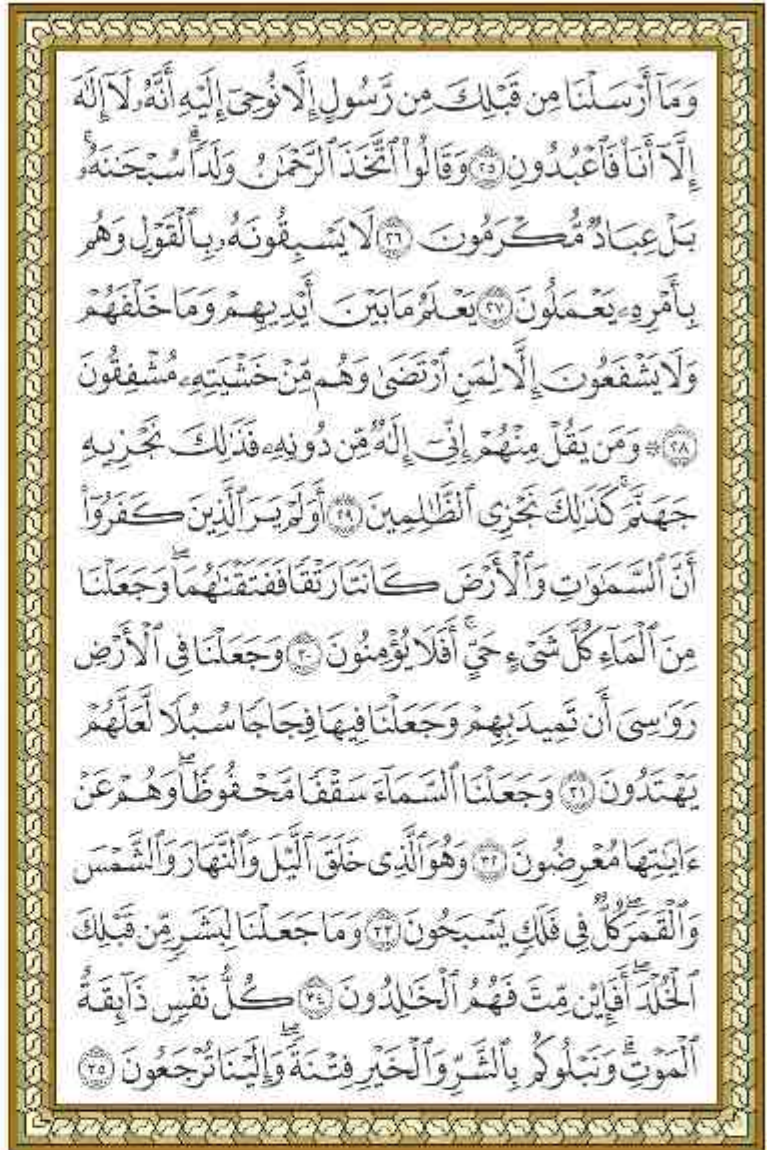 وَمَآ أَرْسَلْنَا مِن قَبْلِكَ مِن رَّسُولٍ إِلَّا نُوحِىٓ إِلَيْهِ أَنَّهُۥ لَآ إِلَٰهَ
إِلَّآ أَنَا۠ فَٱعْبُدُونِ ٢٥ وَقَالُوا۟ ٱتَّخَذَ ٱلرَّحْمَٰنُ وَلَدًۭا ۗ سُبْحَٰنَهُۥ ۚ
بَلْ عِبَادٌۭ مُّكْرَمُونَ ٢٦ لَا يَسْبِقُونَهُۥ بِٱلْقَوْلِ وَهُم
بِأَمْرِهِۦ يَعْمَلُونَ ٢٧ يَعْلَمُ مَا بَيْنَ أَيْدِيهِمْ وَمَا خَلْفَهُمْ
وَلَا يَشْفَعُونَ إِلَّا لِمَنِ ٱرْتَضَىٰ وَهُم مِّنْ خَشْيَتِهِۦ مُشْفِقُونَ
٢٨ ۞ وَمَن يَقُلْ مِنْهُمْ إِنِّىٓ إِلَٰهٌۭ مِّن دُونِهِۦ فَذَٰلِكَ نَجْزِيهِ
جَهَنَّمَ ۚ كَذَٰلِكَ نَجْزِى ٱلظَّٰلِمِينَ ٢٩ أَوَلَمْ يَرَ ٱلَّذِينَ كَفَرُوٓا۟
أَنَّ ٱلسَّمَٰوَٰتِ وَٱلْأَرْضَ كَانَتَا رَتْقًۭا فَفَتَقْنَٰهُمَا ۖ وَجَعَلْنَا
مِنَ ٱلْمَآءِ كُلَّ شَىْءٍ حَىٍّ ۖ أَفَلَا يُؤْمِنُونَ ٣٠ وَجَعَلْنَا فِى ٱلْأَرْضِ
رَوَٰسِىَ أَن تَمِيدَ بِهِمْ وَجَعَلْنَا فِيهَا فِجَاجًۭا سُبُلًۭا لَّعَلَّهُمْ
يَهْتَدُونَ ٣١ وَجَعَلْنَا ٱلسَّمَآءَ سَقْفًۭا مَّحْفُوظًۭا ۖ وَهُمْ عَنْ
ءَايَٰتِهَا مُعْرِضُونَ ٣٢ وَهُوَ ٱلَّذِى خَلَقَ ٱلَّيْلَ وَٱلنَّهَارَ وَٱلشَّمْسَ
وَٱلْقَمَرَ ۖ كُلٌّۭ فِى فَلَكٍۢ يَسْبَحُونَ ٣٣ وَمَا جَعَلْنَا لِبَشَرٍۢ مِّن قَبْلِكَ
ٱلْخُلْدَ ۖ أَفَإِي۟ن مِّتَّ فَهُمُ ٱلْخَٰلِدُونَ ٣٤ كُلُّ نَفْسٍۢ ذَآئِقَةُ
ٱلْمَوْتِ ۗ وَنَبْلُوكُم بِٱلشَّرِّ وَٱلْخَيْرِ فِتْنَةًۭ ۖ وَإِلَيْنَا تُرْجَعُونَ ٣٥